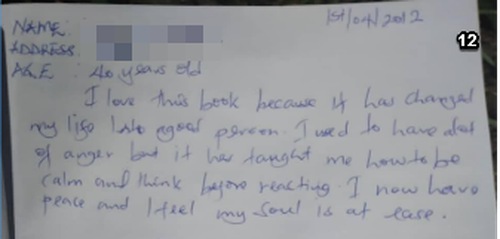 1st/04/2012
NAME:
12
ADDRESS:
AGE : 40 years old
I love this book because it has changed
my life into a good person. I used to have alot
of anger but it has taught me how to be
calm and think before reacting. I now have
peace and I feel my soul is at ease.